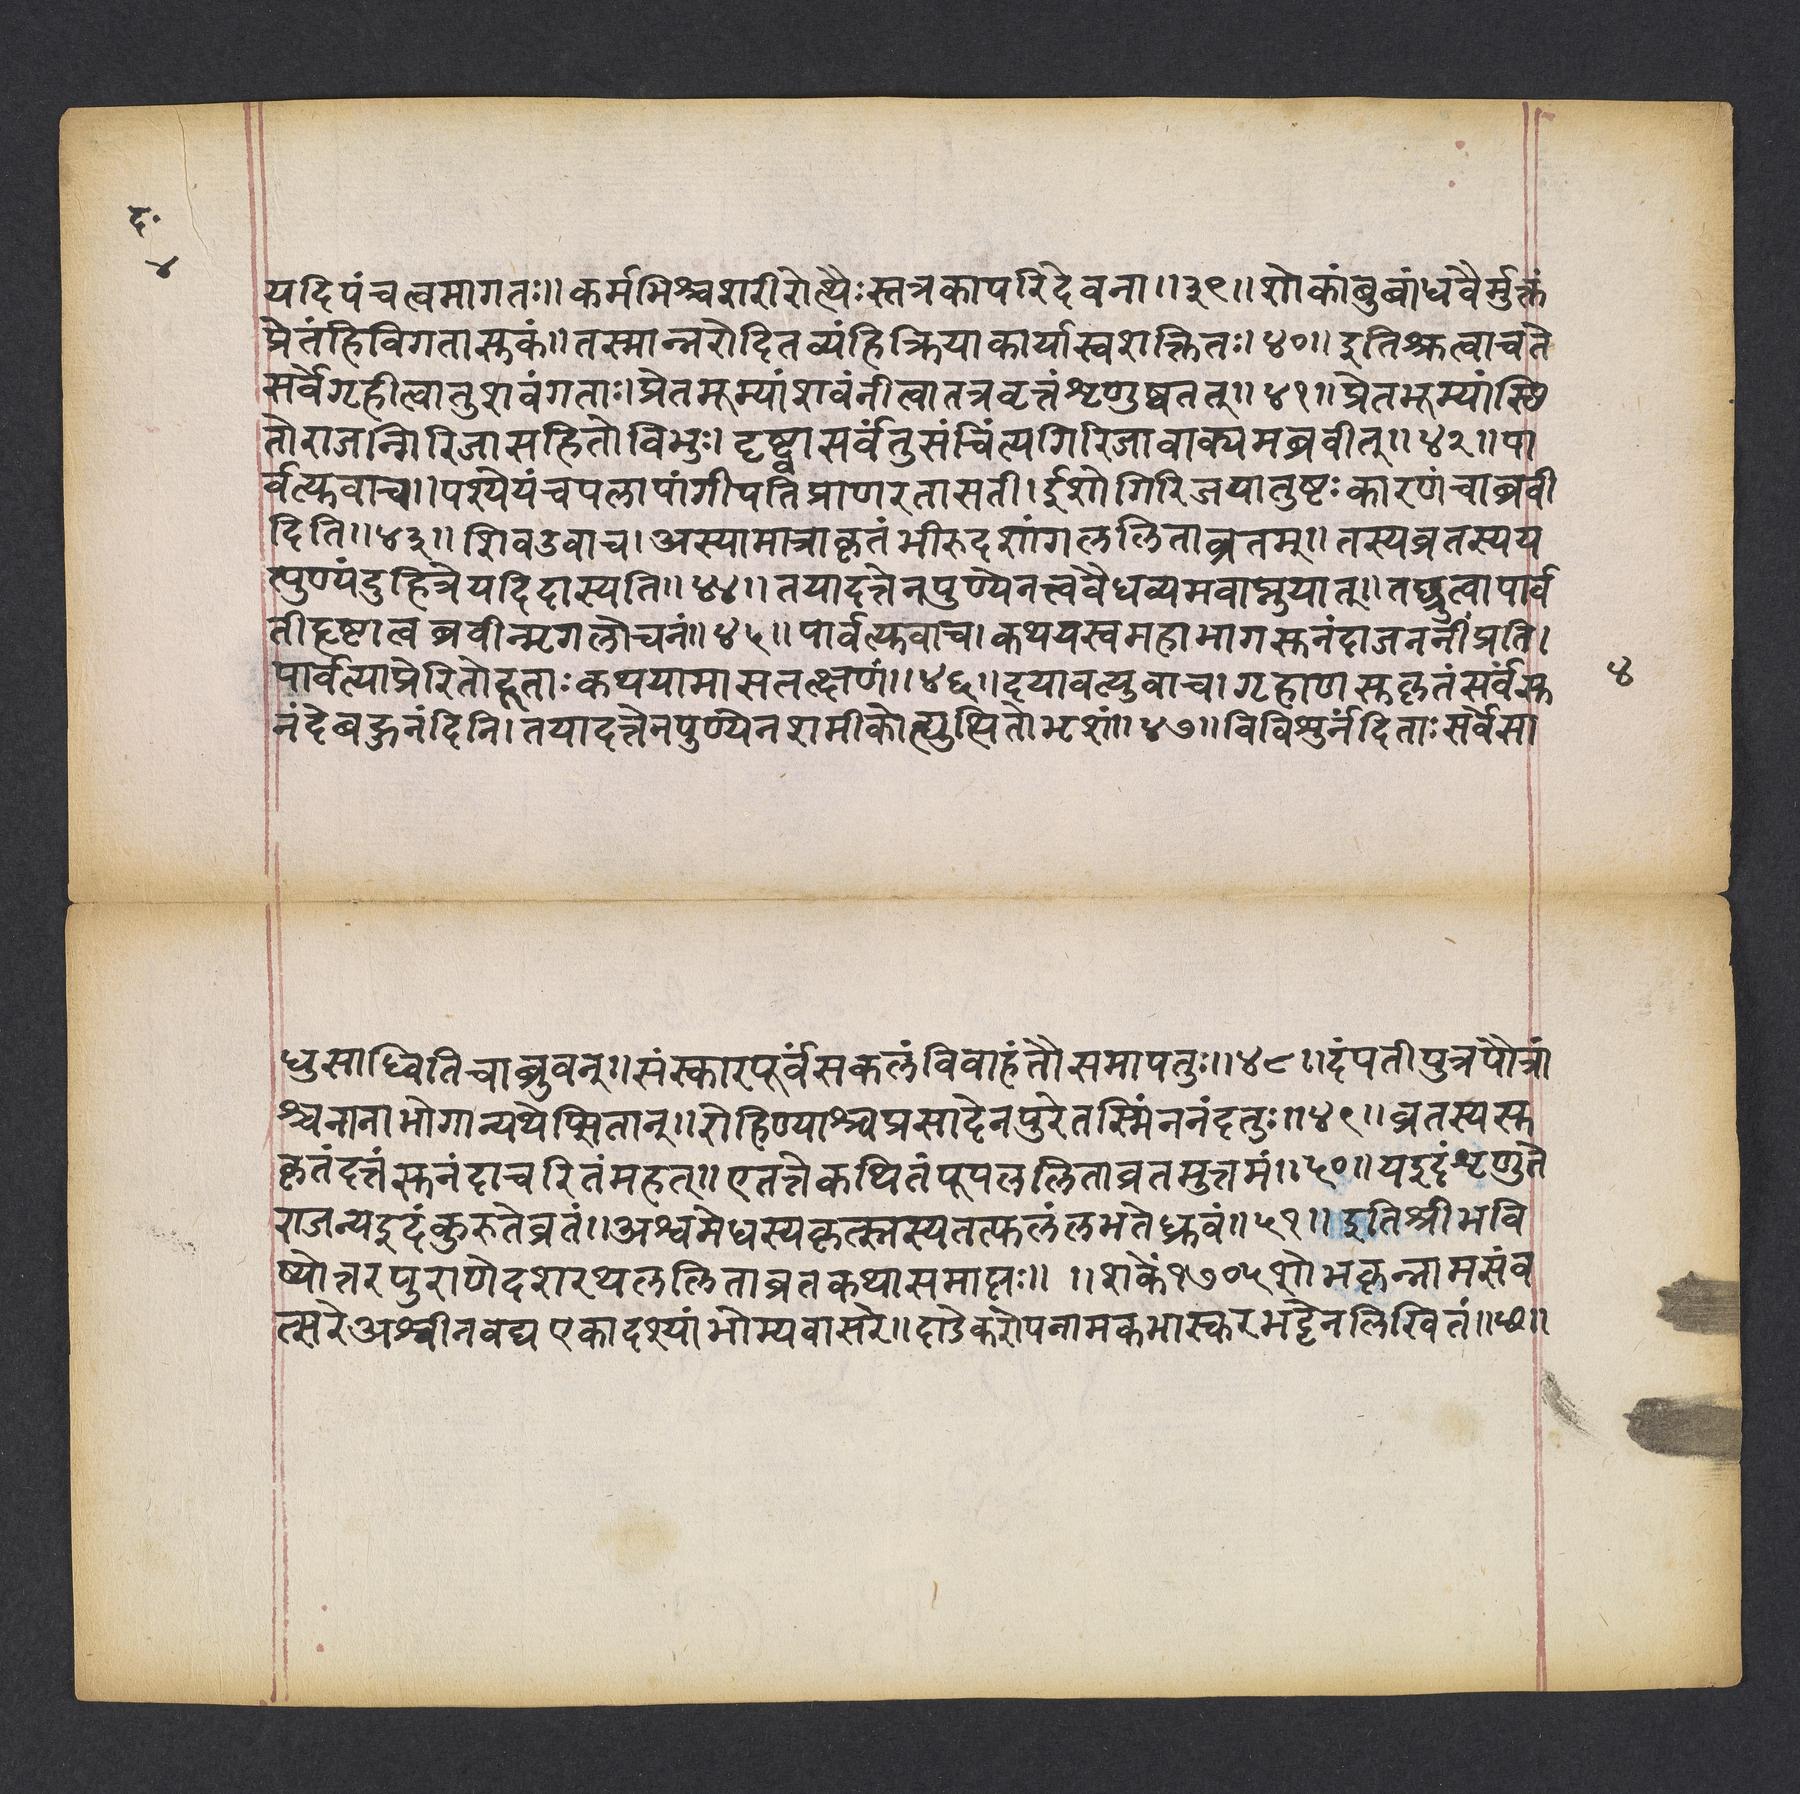 द॰
४
यदिपंचत्वमागतः॥ कर्मभिश्चशरीरोत्थैःस्तत्रकापरिदेवना॥३९॥ शोकांबुबांधवैर्मुक्तं
प्रेतंहिविगतासुकं॥ तस्मान्नरोदितव्यंहिक्रियाकार्यास्वशक्तितः। ४०॥ इतिश्रुत्वाचते
सर्वेगृहीत्वातुशवंगताः। प्रेतभूम्यांशवंनीत्वातत्रवृत्तंशृणुष्वतत्॥ ४१॥ प्रेतभूम्यांस्थि
तोराजन्गिरिजासहितोविभुः। दृष्ट्वासर्वंतुसंचिंत्यगिरिजावाक्यमब्रवीत्॥ ४२॥ पा
र्वत्युवाच॥ पश्येयंचपलापांगीपतिप्राणरतासती। ईशोगिरिजयातुष्टः कारणंचाब्रवी
दिति॥ ४३॥ शिवउवाच। अस्यामात्राकृतंभीरुदशांगललिताव्रतम्॥ तस्यव्रतस्यय
त्पुण्यंदुहित्रेयदिदास्यति॥ ४४॥ तयादत्तेनपुण्येनत्ववैधव्यमवाप्नुयात्॥ तच्छ्रुत्वापार्व
तीहृष्टात्वब्रवीन्मृगलोचनं॥ ४५॥ पार्वत्युवाच। कथयस्वमहाभागसुनंदाजननींप्रति।
पार्वत्याप्रेरितोहूताः कथयामासतत्क्षणं॥ ४६॥ दयावत्युवाच। गृहाणसुकृतंसर्वंसु
नंदेबहुनंदिनि। तयादत्तेनपुण्येनशमीकोत्थुत्थितोभृशं॥ ४७॥ विविशुर्नंदिताः सर्वेसा
४
धुसाध्वितिचाब्रुवन्। संस्कारपूर्वंसकलंविवाहंतौसमापतुः॥ ४८॥ दंपतीपुत्रपौत्रां
श्चनानाभोगान्यथेप्सितान्॥ रोहिण्याश्चप्रसादेनपुरेतस्मिंननंदतुः॥ ४९॥ व्रतस्यसु
कृतंदत्तंसुनंदाचरितंमहत्॥ एतत्तेकथितंभूपललिताव्रतमुत्तमं॥ ५०॥ यइदंशृणुते
राजन्यइदंकुरुतेव्रतं॥ अश्वमेधस्यकृत्स्नस्यतत्फलंलभतेध्रुवं॥ ५१॥ इतिश्रीभवि
ष्योत्तरपुराणेदशरथललिताव्रतकथासमाप्तः॥ ॥शके १७०५ शोभकृन्नामसंव
त्सरेअश्वीनवद्य एकादश्यां भोम्यवासरे॥ दाडेकरोपनामकभास्करभट्टेनलिखितं॥छ॥